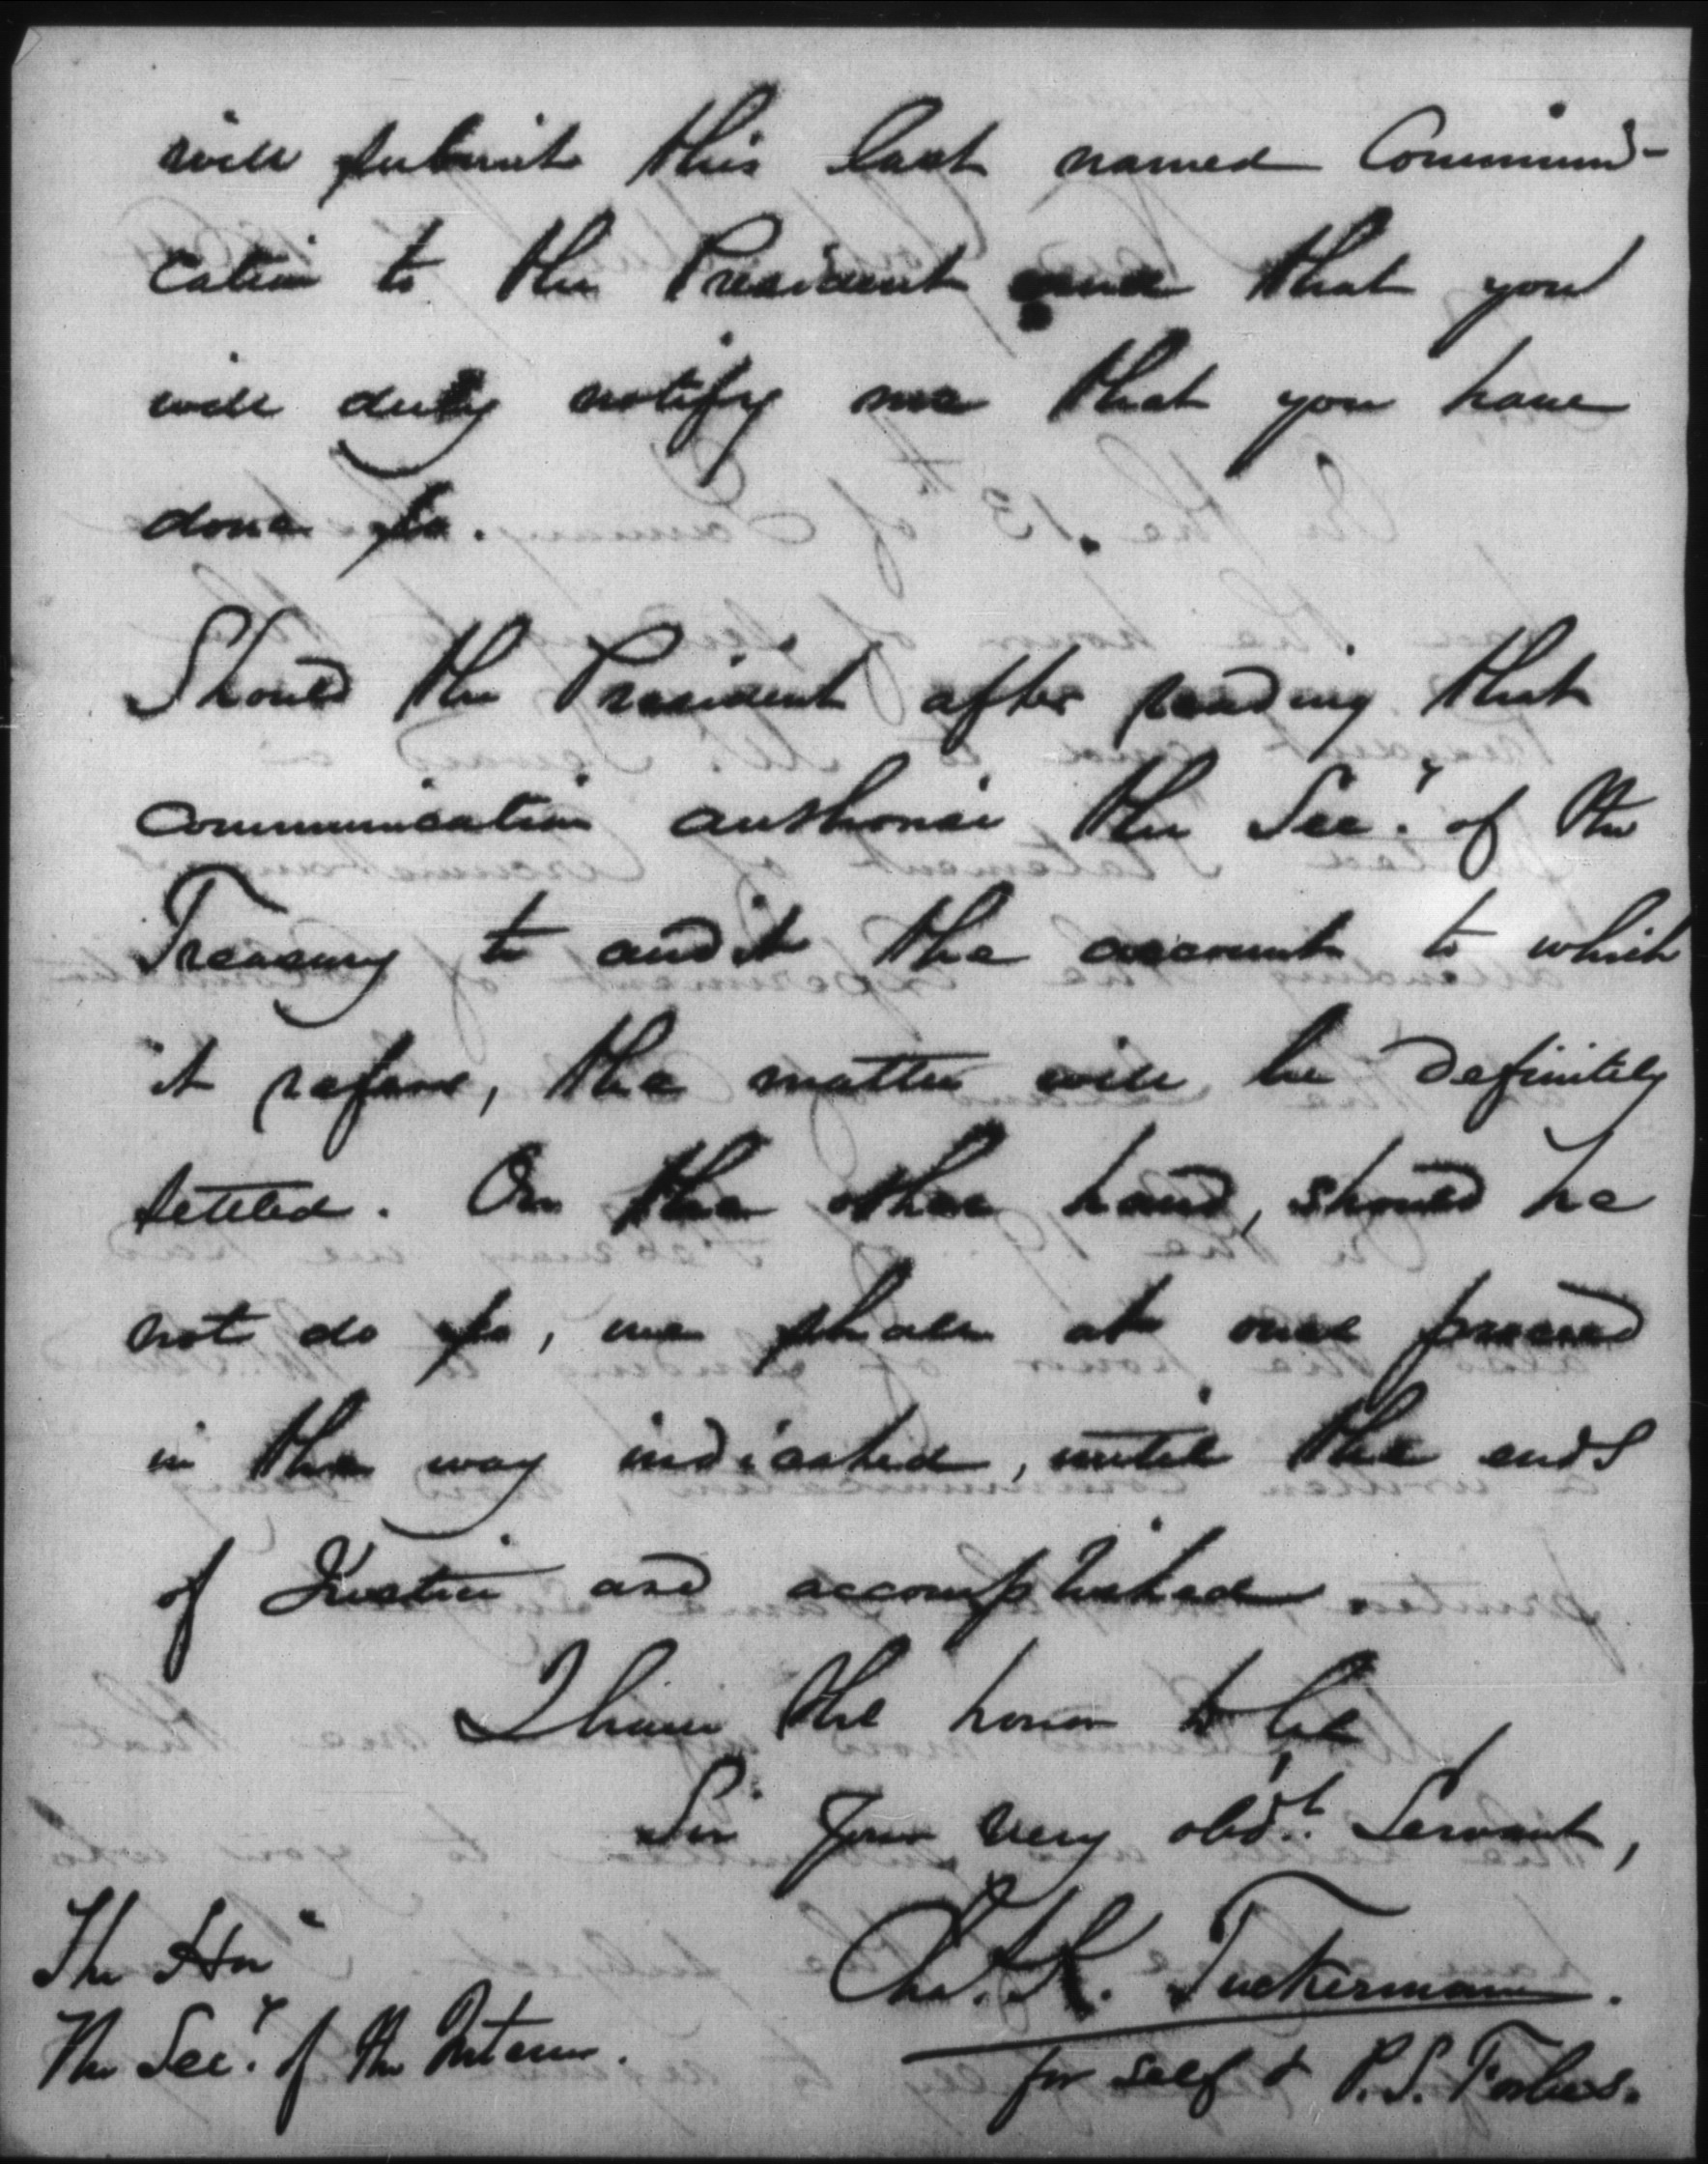 will submit this last named Communi-
cation to the President and that you
will duly notify me that you have
done so.
Should the President after reading that
communication authorise the Secy. of the
Treasury to audit the account to which
it refers, the matter will be definitely
settled. On the other hand, should he
not do so, we shall at once proceed
in the way indicated, until the ends
of Justice are accomplished.
I have the honor to be
Sir Your very obdt. Servant,
Chas. K. Tuckerman.
for self & P. S. Forbes.
The Hon
The Secy. of the Interior.